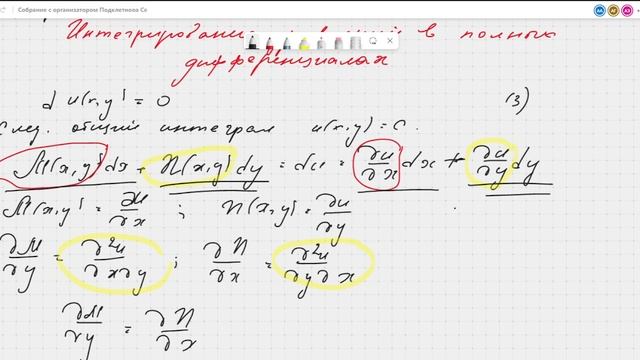 Собрание с организатором Подклетнова Св
АА АГ АЗ
Интегрирование уравнений в полных
дифференциалах
d u(x,y) = 0 (3)
След. общий интеграл u(x,y) = C.
M(x,y)dx + N(x,y)dy = du = ∂u/∂x dx + ∂u/∂y dy
M(x,y) = ∂u/∂x ; N(x,y) = ∂u/∂y
∂M/∂y = ∂²u/∂x∂y ; ∂N/∂x = ∂²u/∂y∂x
∂M/∂y = ∂N/∂x